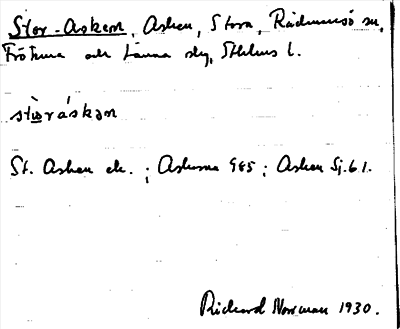 Stor-Asken, Asken, Stora, Rådmansö sn,
Frötuna och Länna skg, Sthlms l.
stωråskən
St. Asken ek. ; Askarna GEK ; Asken Sj. 61.
Richard Norrman 1930.